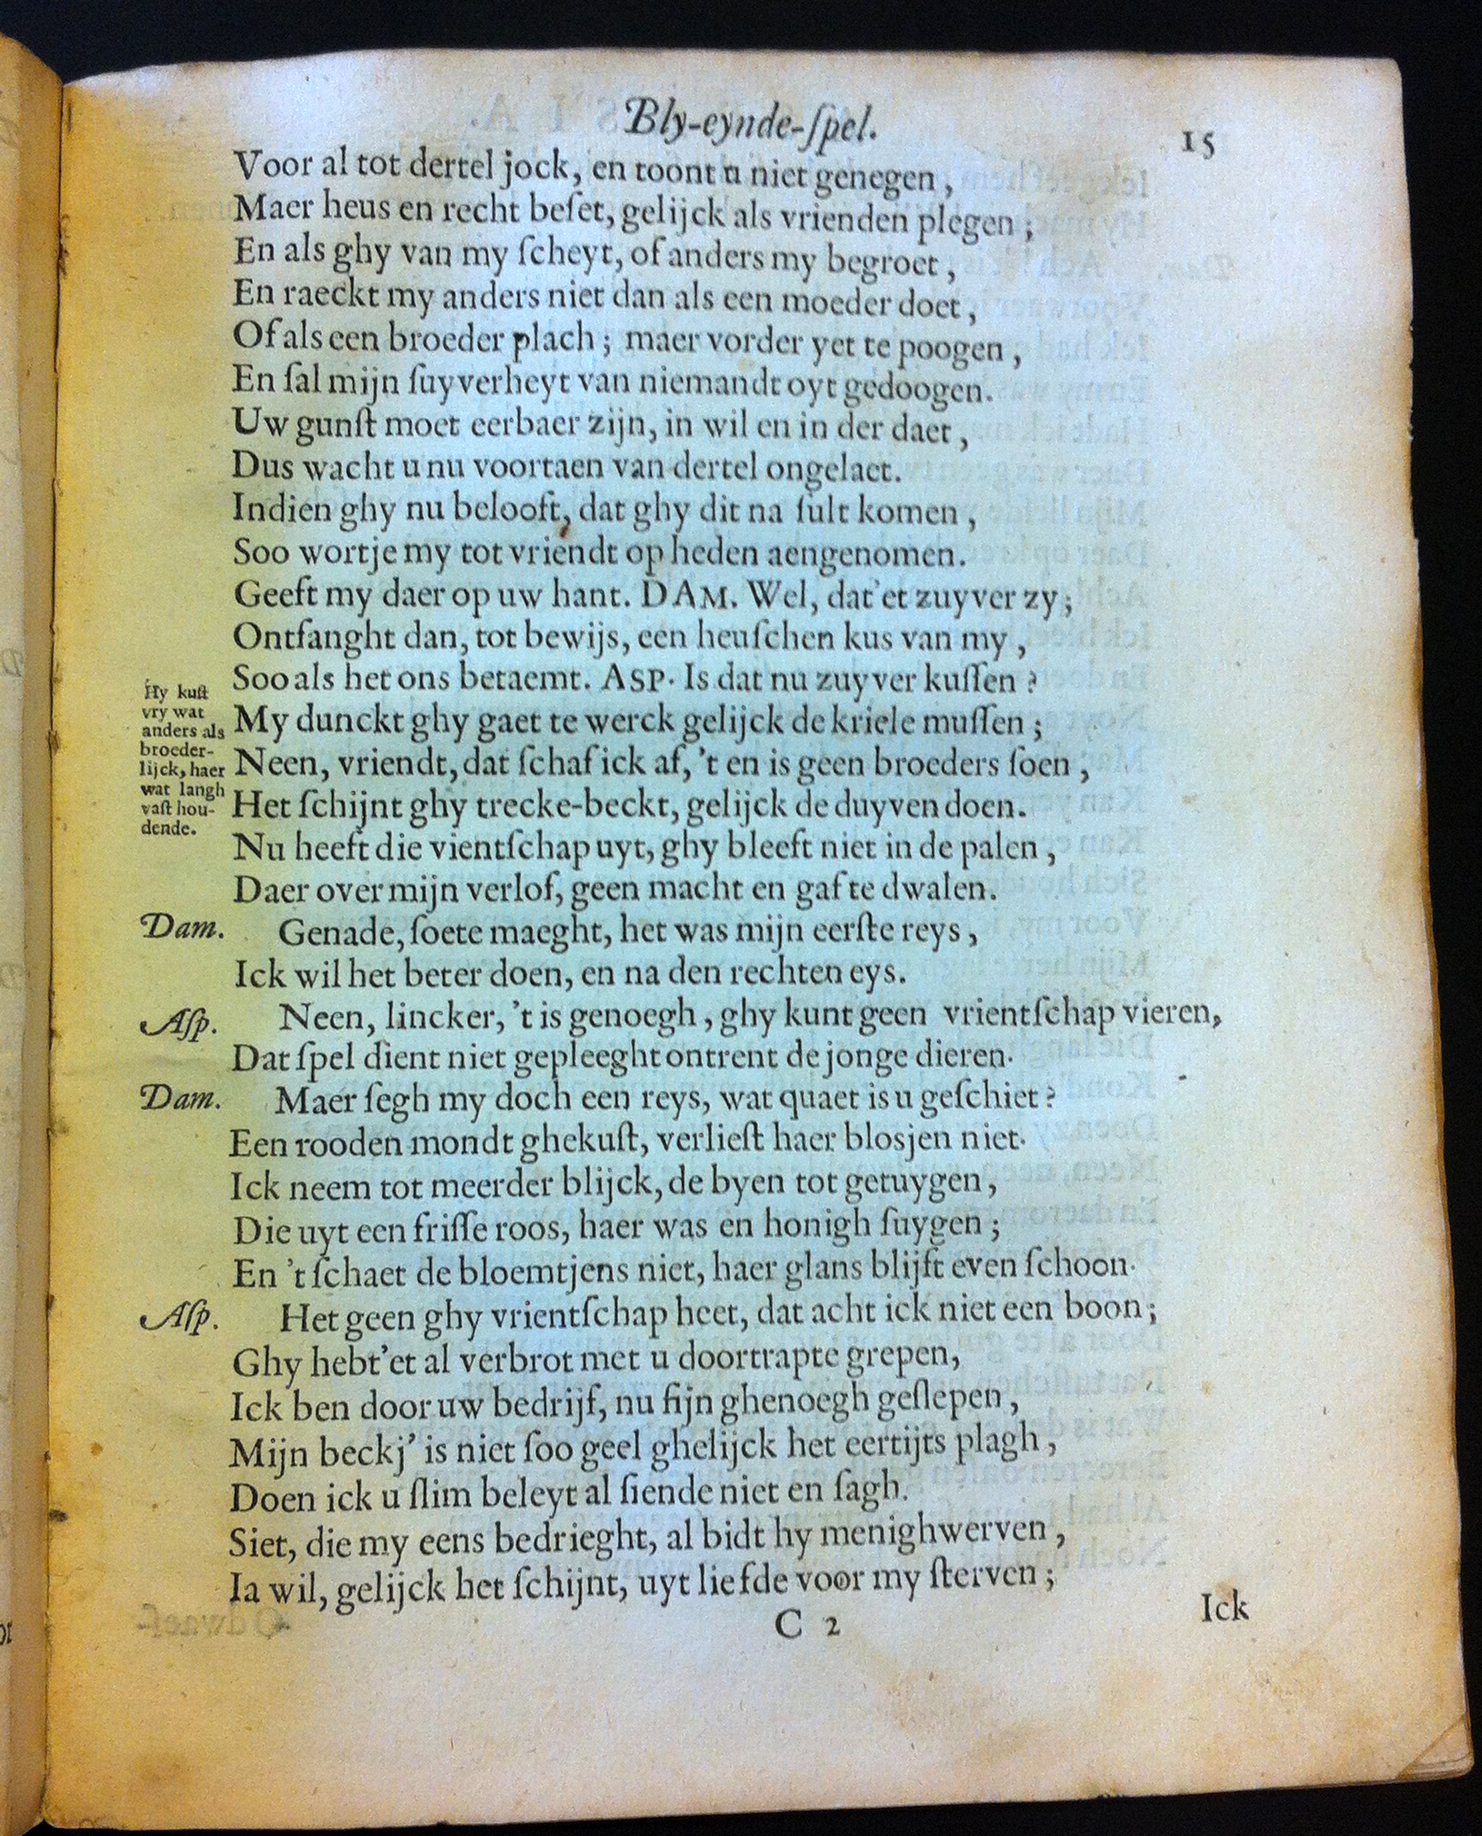 Bly-eynde-ſpel.
15
Voor al tot dertel jock, en toont u niet genegen,
Maer heus en recht beſet, gelijck als vrienden plegen;
En als ghy van my ſcheyt, of anders my begroet,
En raeckt my anders niet dan als een moeder doet,
Of als een broeder plach; maer vorder yet te poogen,
En ſal mijn ſuyverheyt van niemandt oyt gedoogen.
Uw gunſt moet eerbaer zijn, in wil en in der daet,
Dus wacht u nu voortaen van dertel ongelaet.
Indien ghy nu belooft, dat ghy dit na ſult komen,
Soo wortje my tot vriendt op heden aengenomen.
Geeft my daer op uw hant. DAM. Wel, dat'et zuyver zy;
Ontfanght dan, tot bewijs, een heuſchen kus van my,
Soo als het ons betaemt. ASP. Is dat nu zuyver kuſſen?
My dunckt ghy gaet te werck gelijck de kriele muſſen;
Neen, vriendt, dat ſchaf ick af, 't en is geen broeders ſoen,
Het ſchijnt ghy trecke-beckt, gelijck de duyven doen.
Hy kuſt
vry wat
anders als
broeder-
lijck, haer
wat langh
vaſt hou-
dende.
Nu heeft die vientſchap uyt, ghy bleeft niet in de palen,
Daer over mijn verlof, geen macht en gaf te dwalen.
Dam. Genade, ſoete maeght, het was mijn eerſte reys,
Ick wil het beter doen, en na den rechten eys.
Aſp. Neen, lincker, 't is genoegh, ghy kunt geen vrientſchap vieren,
Dat ſpel dient niet gepleeght ontrent de jonge dieren.
Dam. Maer ſegh my doch een reys, wat quaet is u geſchiet?
Een rooden mondt ghekuſt, verlieſt haer blosjen niet.
Ick neem tot meerder blijck, de byen tot getuygen,
Die uyt een friſſe roos, haer was en honigh ſuygen;
En 't ſchaet de bloemtjens niet, haer glans blijft even ſchoon.
Aſp. Het geen ghy vrientſchap heet, dat acht ick niet een boon;
Ghy hebt'et al verbrot met u doortrapte grepen,
Ick ben door uw bedrijf, nu fijn ghenoegh geſlepen,
Mijn beckj' is niet ſoo geel ghelijck het eertijts plagh,
Doen ick u ſlim beleyt al ſiende niet en ſagh.
Siet, die my eens bedrieght, al bidt hy menighwerven,
Ia wil, gelijck het ſchijnt, uyt liefde voor my ſterven;
C 2
Ick